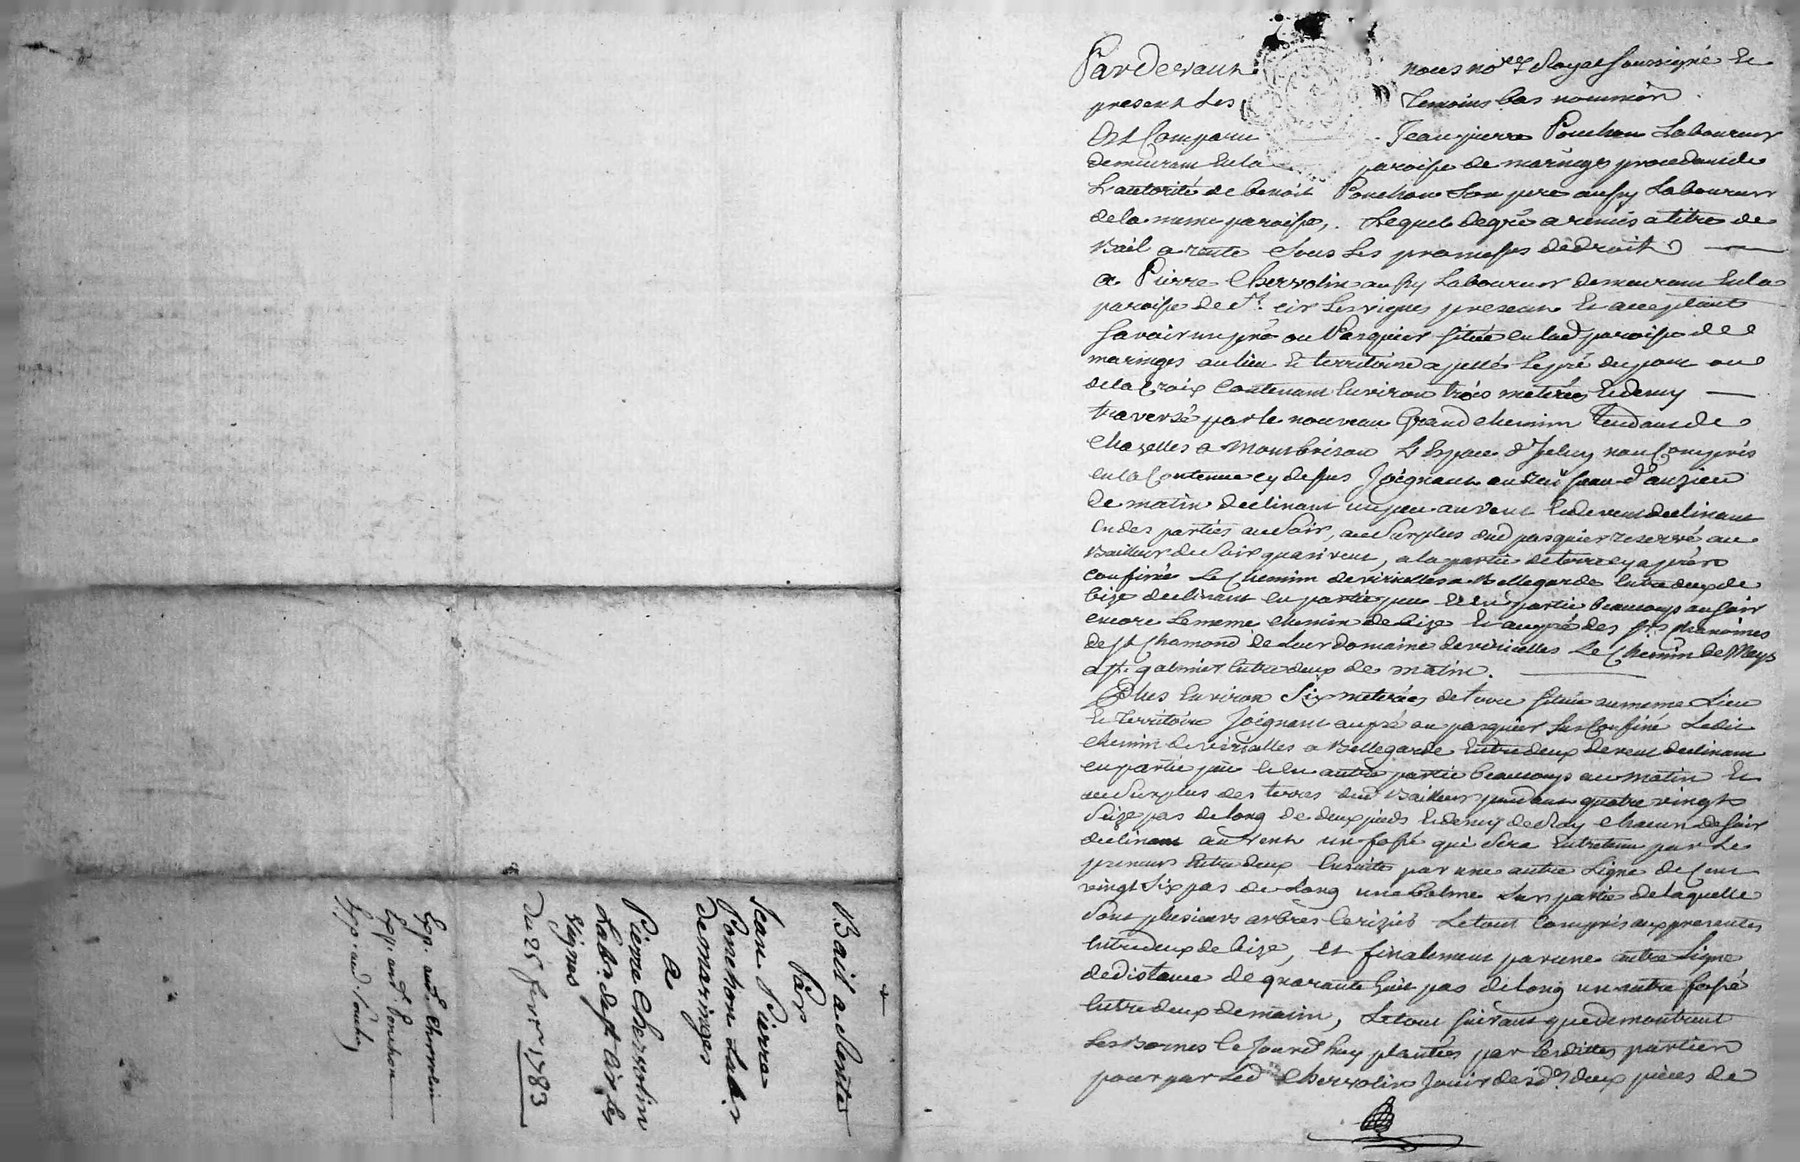 Bail a Rente
Par
Jean Pierre
Ponchon Labr
De maringes
a
Pierre Chervolin
Labr. de st Cir les
Vignes
Du 25 fevr 1783
Exp. aud. Chervolin
Exp. aud. Ponchon
Exp. aud. Ponchon
Pardevant nous nore Royal Soussigné Et
present Les Temoins bas nommés
Est Comparu Jean pierre Ponchon Laboureur
demeurant En la paroisse de maringes procedant de
L'autorité de benoit Ponchon Son pere aussy Laboureur
de la meme paroisse, Lequel de gré a remis a titre de
Bail a rente Sous Les promesses de droit
a Pierre Chervolin aussy Laboureur demeurant En la
paroisse de St cir Les vignes present Et acceptant
Savoir un pré ou Pasquier Situé en lad paroisse de
maringes au lieu Et territoire appellé Le pré du pont ou
de la Croix Contenant Environ trois meterées Et demy
traversé par le nouveau Grand chemin Tendant de
Chazelles a Montbrison L'Espace d'Iceluy non Compris
en la Contenue cy dessus Joignant au Ruisseau d'anzieu
de matin declinant un peu au vent Et de vent declinant
en des parties au Soir, au Surplus dud pasquier reservé au
Bailleur de Soir quasi vent, a la partie de terre cy après
confinée Le Chemin de viricelles a Bellegarde Entre deux de
bize declinant en partie peu Et en partie beaucoup au Soir
encore Le meme chemin de bize Et au pré des Srs Chanoines
de St Chamond de Leur domaine de viricelles Le Chemin de Meys
a St galmier Entre deux de matin.
Plus Environ Six meterées de terre Située au meme Lieu
Et Territoire Joignant au pré ou pasquier Sus Confiné Ledit
chemin de viricelles a Bellegarde Entre deux de vent declinant
en partie peu Et en autre partie beaucoup au matin Et
au Surplus des terres dud Bailleur pendant quatre vingt
Seize pas de long de deux pieds Et demy de Roy chacun de Soir
declinant au vent un fossé qui Sera Entretenu par Le
preneur Entre deux Ensuite par une autre Ligne de Cent
vingt Six pas de Long une balme Sur partie de laquelle
Sont plusieurs arbres Cerisiers Le tout Compris aux presentes
Entre deux de bize, et finalement par une autre Ligne
de distance de quarante huit pas de long un autre fossé
Entre deux de matin, Le tout Suivant que demontrent
Les Bornes Ce Jourd'huy plantées par Lesdittes parties
pour par Led Chervolin Jouir desd. deux pieces de